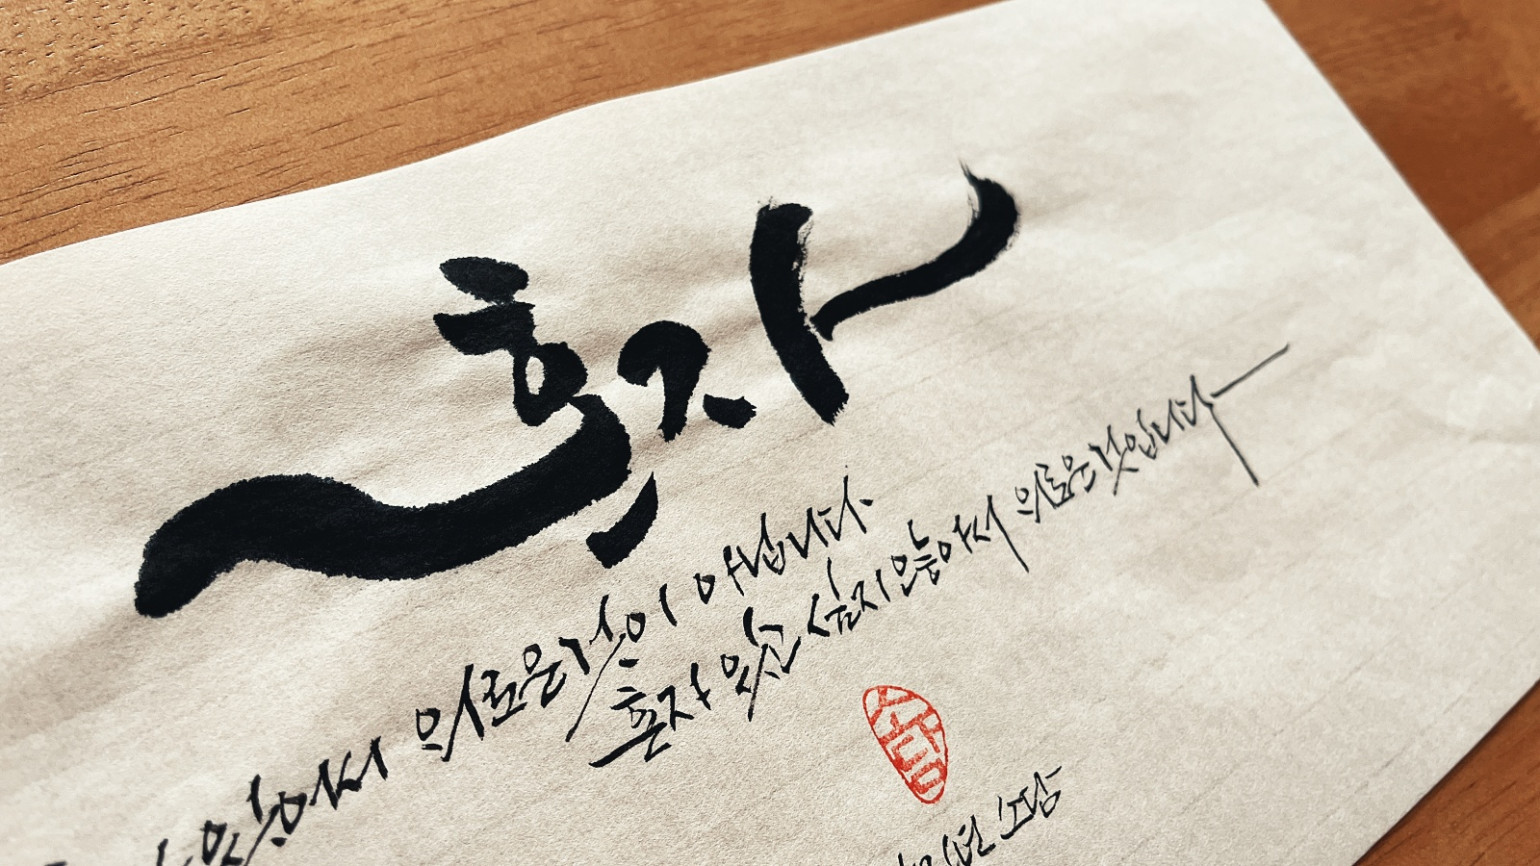 혼자
있어서 외로운 것이 아닙니다
혼자 있고 싶지 않아서 외로운 것입니다
소담
소담